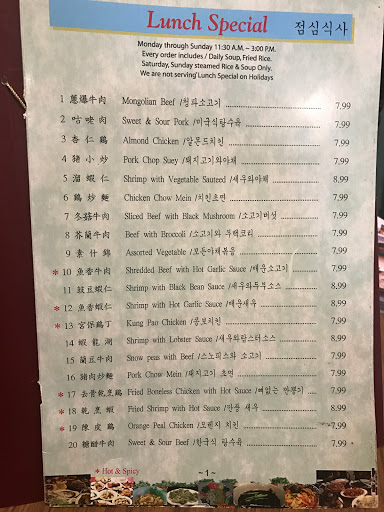 Lunch Special 점심식사
Monday through Sunday 11:30 A.M. ~ 3:00 P.M.
Every order includes / Daily Soup, Fried Rice.
Saturday, Sunday steamed Rice & Soup Only.
We are not serving Lunch Special on Holidays
1 蔥爆牛肉 Mongolian Beef /청파소고기 7.99
2 咕咾肉 Sweet & Sour Pork /미국식탕수육 7.99
3 杏仁鷄 Almond Chicken /알몬드치킨 7.99
4 豬小炒 Pork Chop Suey /돼지고기와야채 7.99
5 溜蝦仁 Shrimp with Vegetable Sauteed /새우와야채 8.99
6 鷄炒麵 Chicken Chow Mein /치킨초면 7.99
7 冬菇牛肉 Sliced Beef with Black Mushroom /소고기버섯 7.99
8 芥蘭牛肉 Beef with Broccoli /소고기와 부랙코리 7.99
9 素什錦 Assorted Vegetable /모든야채볶음 7.99
* 10 魚香牛肉 Shredded Beef with Hot Garlic Sauce /매운소고기 7.99
11 豉豆蝦仁 Shrimp with Black Bean Sauce /새우와두부소스 8.99
* 12 魚香蝦仁 Shrimp with Hot Garlic Sauce /매운새우 8.99
* 13 宮保鷄丁 Kung Pao Chicken /콩보치킨 7.99
14 蝦龍湖 Shrimp with Lobster Sauce /새우와랍스터소스 8.99
15 蘭豆牛肉 Snow peas with Beef /스노피스와 소고기 7.99
16 豬肉炒麵 Pork Chow Mein /돼지고기 초면 7.99
* 17 去骨乾烹鷄 Fried Boneless Chicken with Hot Sauce /뼈없는 깐풍기 7.99
* 18 乾烹蝦 Fried Shrimp with Hot Sauce /깐풍 새우 8.99
* 19 陳皮鷄 Orange Peal Chicken /오렌지 치킨 7.99
20 糖醋牛肉 Sweet & Sour Beef /한국식 탕수육 7.99
* Hot & Spicy
~1~